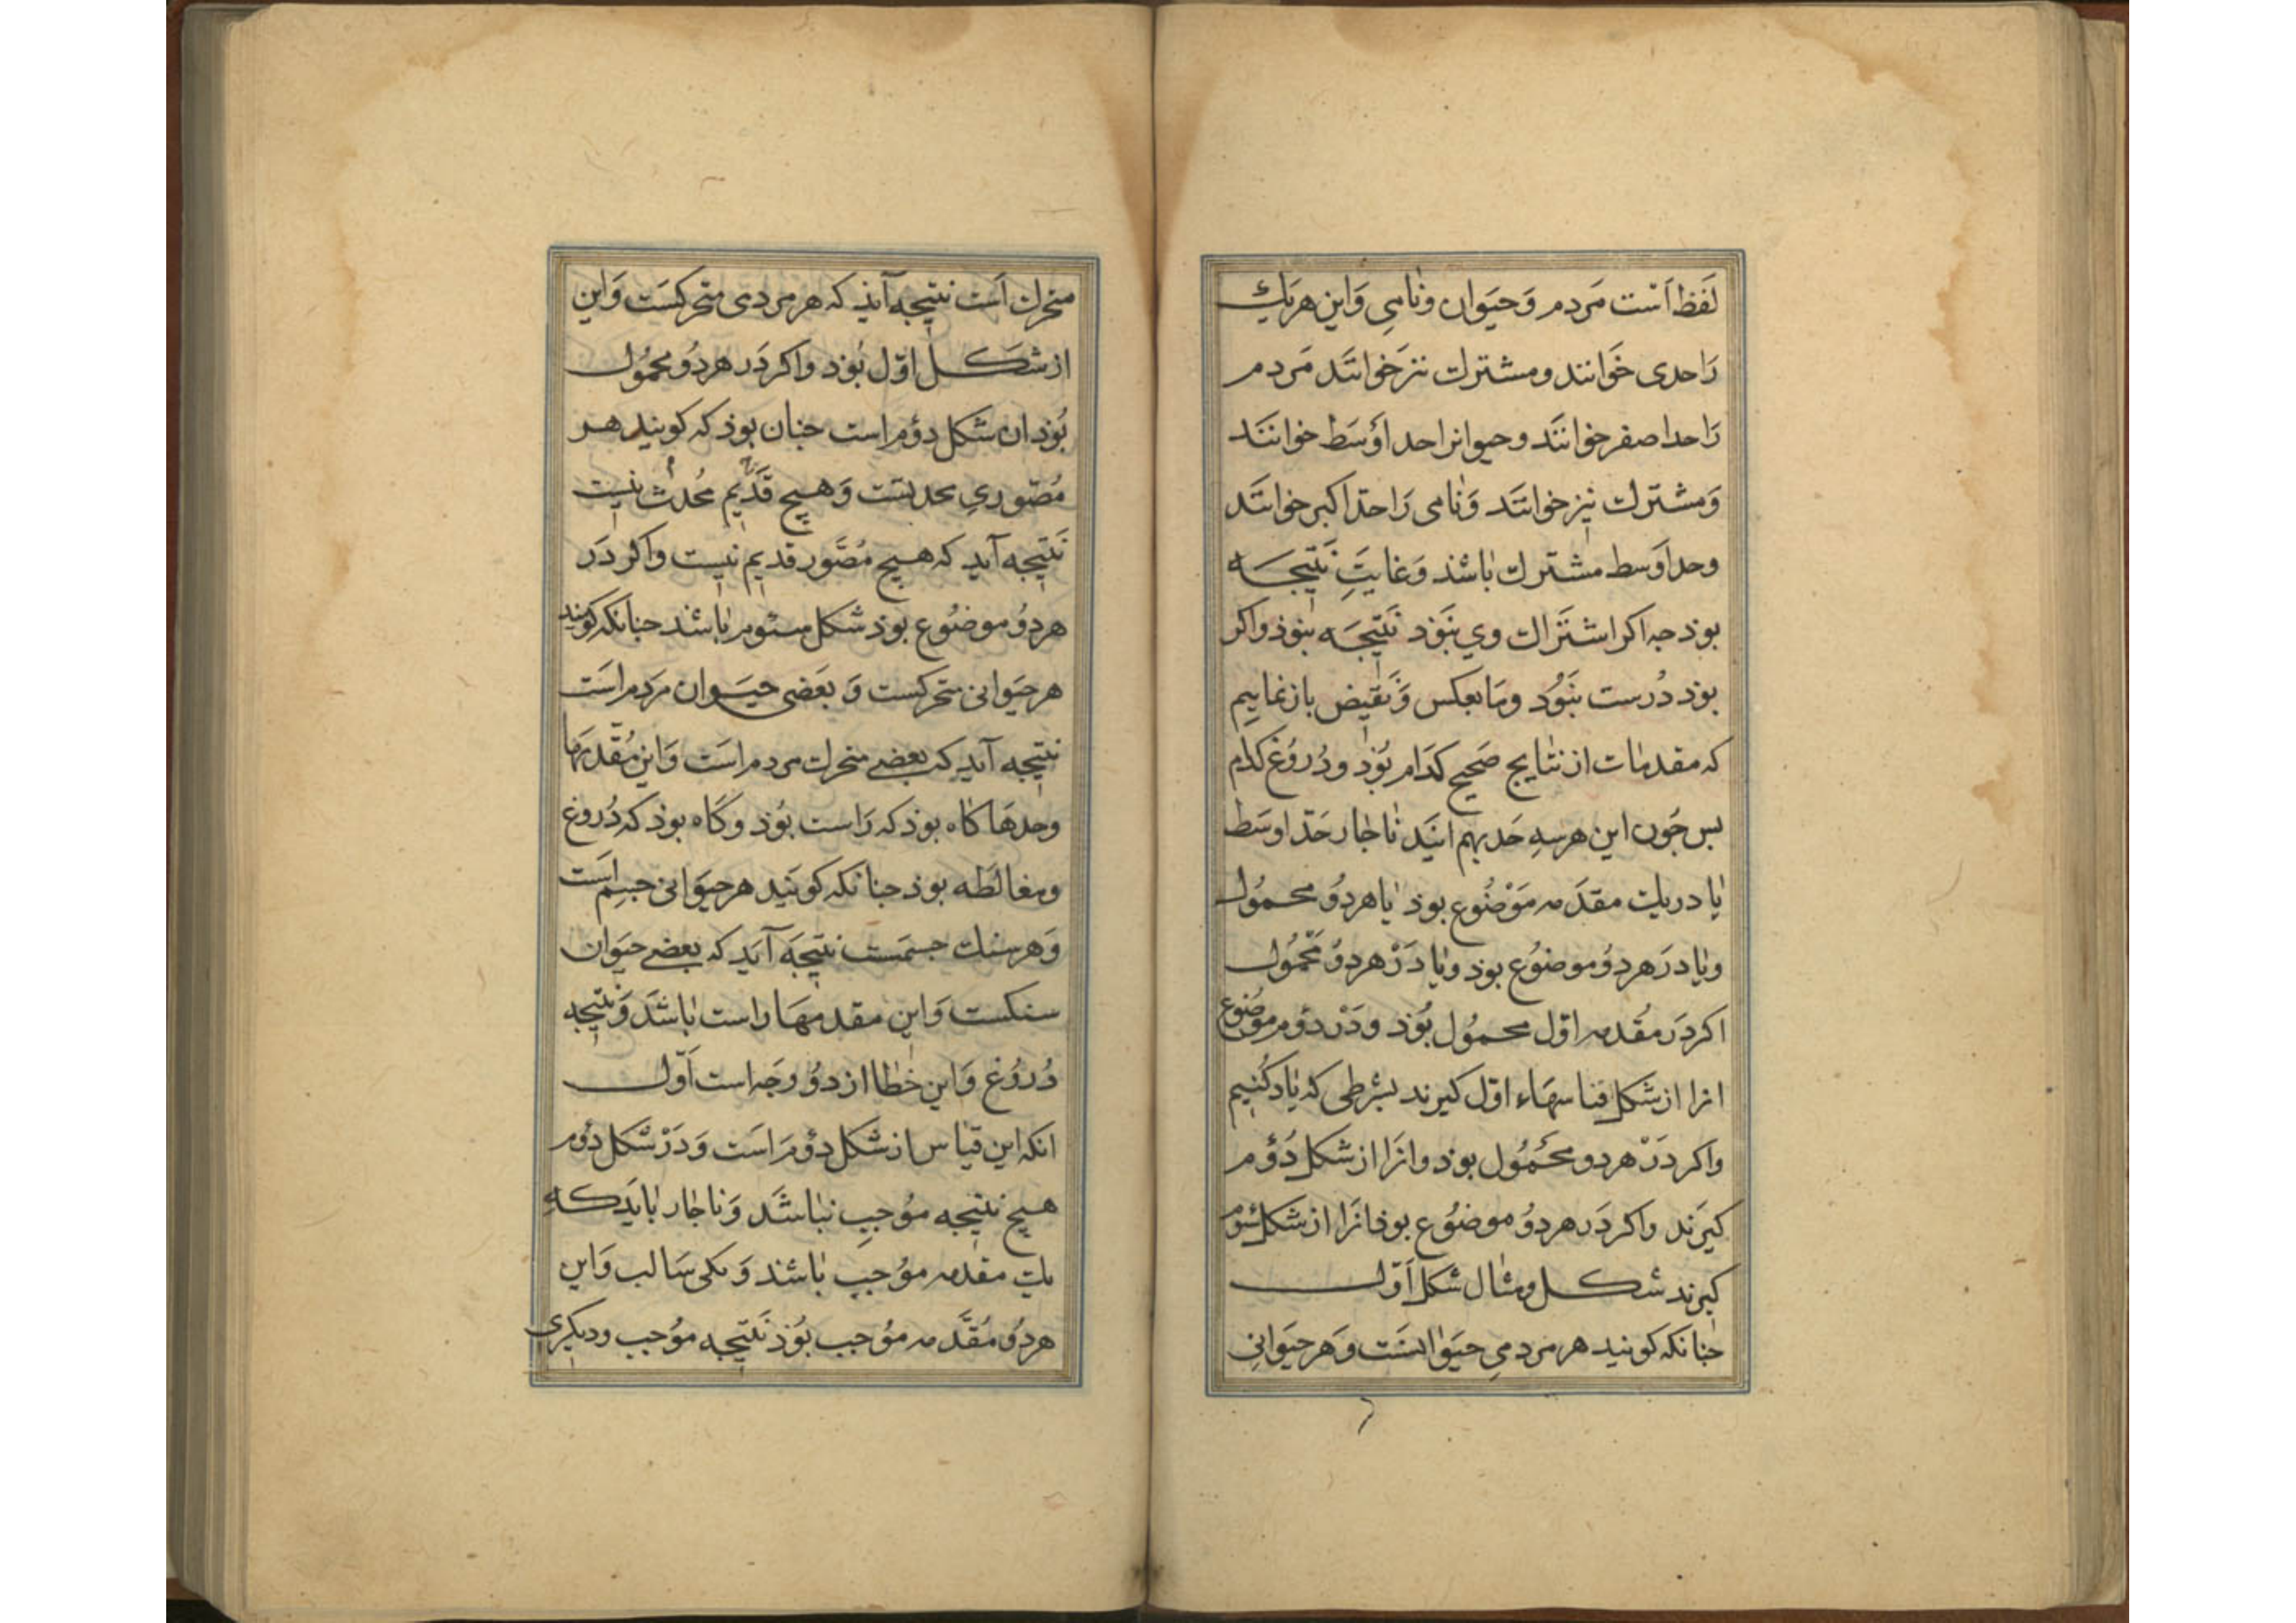 لَفظ اَست مَردم وَحیَوان ونٰامیِ وَاین هریَك
رَاحدی خوَانند ومشترك نیزخوَانند مَردم
رَاحداصغرخوانَند وحیوانراحد اَوْسَط خوانَند
وَمشترك نیز خوانَند وَنٰامی رَاحدّاکبر خوانَند
وحداَوسط مشترك بٰاشذ وَغایتِ نَتیجَه
بوذ جه اکراشتَرَاك وی بنَوذ نَتیجَه بنوذ واکر
بوذ دُرست بنَوَد ومَا بعکس وَنَقیض بازنماییم
که مقدمٰات از نتٰایج صَحیح کدَام بوَذ ودُروُغ کدَام
بس جَون این هرسهِ حَد بهم ایَند نٰاجٰار حَدّ اوسَط
یٰا دریك مقدَمه مَوْضُوع بوذ یٰا هردُو محمُول
ویٰا دَر هردُو موضوُع بوذ ویٰا دَرْ هردوُ مَحْمُول
اکر دَر مُقَدمه اوّل محموُل بوَذ ودَرْ دوُم موضوُع
انرا ازشکل قیاسهَاء اوّل کیرند بشرطی که یٰاد کُنیم
واکر دَرْ هردو محَمُول بوذ وانرَا ازشکل دُوُم
کیرَند واکر دَر هردوُ موضوُع بوذ انرَا ازشکل سُوم
کیرند شکل ومثٰال شکل اَوّل
جنانکه کویَند هرمردمیِ حیَوٰانست وَهرحیَوانیِ
متحرك اَست نتیجه آیذ که هرمردی متحرکسَت وَاین
ازشکل اوّل بُوذ واکر دَر هردُو محموُل
بُوذ ان شکل دوُم است جنان بوذ که کویند هر
مُصَوری محدثست وَهیچ قَدیم مُحدث نیست
نَتیجه آید که هیچ مُصَور قدیم نیست واکر دَر
هردوُ موضوُع بوذ شکل سوم بٰاشد جنانکه کویند
هرحیَوانی متحرکست وَ بعَضی حیَوان مرَدم اسَت
نتیجه آید که بعضی متحرك مردم اسَت وَاین مُقَدمَها
وحدهَا کاه بوذ که رَاست بوَذ وکَاه بوذ که دُروغ
ومغالَطه بوذ جنانکه کویَند هرحیَوانی جسِم است
وَهرسنك جسمَست نتیجَه آیَد که بعضی حیَوان
سنکست وَاین مقدمهَا راست بٰاشَد وَنتیجه
دُروُغ وَاین خَطٰا از دوُ وجَه است اَوّل
انکه این قیٰاس ازشکل دوُم اَست وَدَرْ شکل دوُم
هیج نتیجه موُجبِ نبٰاشَد وَنٰاجٰار بٰایَد که
یك مقدمه موُجبِ بٰاشند وَیکی سَالب وَاین
هردُو مُقَدَّمه موُجب بوُذ نَتیجه موُجب ودیکری